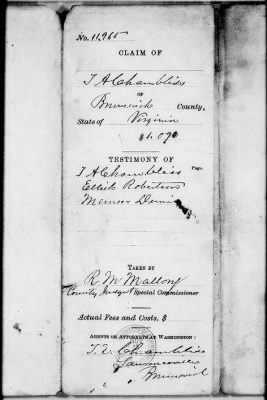 No. 11,965
CLAIM OF
J A Chambliss
OF
Brunswick County,
State of Virginia
$1.090
TESTIMONY OF
Page.
J A Chambliss
Robertson
TAKEN BY
R. M. Mallory
County Judge & Special Commissioner
Actual Fees and Costs, $
AGENTS OR ATTORNEYS AT WASHINGTON:
Chambliss
Lawrenceville
Brunswick